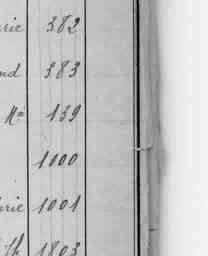 rie 382
nd 383
Mie 139
1000
rie 1001
th 1803